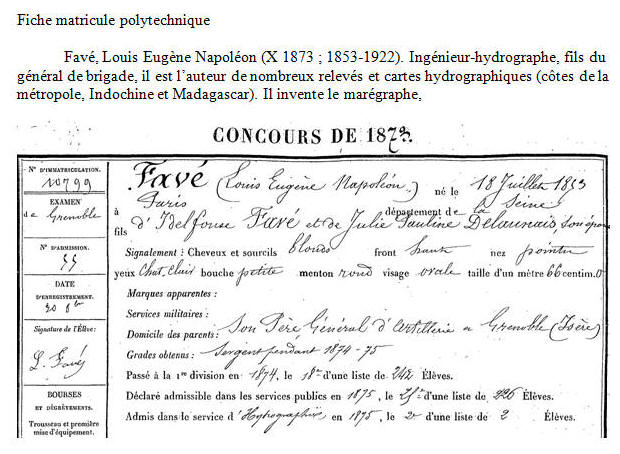 Fiche matricule polytechnique
Favé, Louis Eugène Napoléon (X 1873 ; 1853-1922). Ingénieur-hydrographe, fils du
général de brigade, il est l’auteur de nombreux relevés et cartes hydrographiques (côtes de la
métropole, Indochine et Madagascar). Il invente le marégraphe,
CONCOURS DE 1873.
N° D'IMMATRICULATION.
10799
EXAMEN
de Grenoble
N° D'ADMISSION.
55
DATE
D'ENREGISTREMENT.
30 8bre
Signature de l'Élève:
L. Favé
BOURSES
ET DÉGRÈVEMENTS.
Trousseau et première
mise d'équipement.
Favé (Louis Eugène Napoléon) né le 18 Juillet 1853
à Paris département de la Seine
fils d'Idelfonse Favé et de Julie Pauline Delaunais, son
Signalement : Cheveux et sourcils blonds front haut nez pointu
yeux Chat. Clair bouche petite menton rond visage ovale taille d'un mètre 66 centim. 0
Marques apparentes :
Services militaires :
Domicile des parents : Son Père Général d'Artillerie à Grenoble (Isère)
Grades obtenus : Sergent pendant 1874-75
Passé à la 1re division en 1874, le 18e d'une liste de 242 Élèves.
Déclaré admissible dans les services publics en 1875, le d'une liste de 226 Élèves.
Admis dans le service d'Hydrographie en 1875, le 2e d'une liste de 2 Élèves.